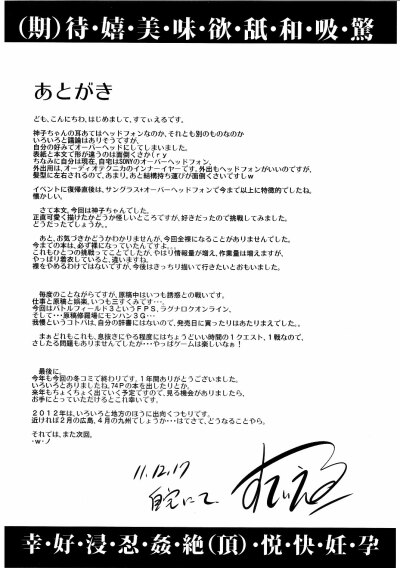 (期)待・嬉・美・味・欲・舐・和・吸・驚
あとがき
ども、こんにちわ、はじめまして、すてぃえるです。
神子ちゃんの耳あてはヘッドフォンなのか、それとも別のものなのか
いろいろと議論はありそうですが、
自分の好みでオーバーヘッドにしてしまいました。
表紙と本文で形が違うのは面倒くさか(ｒｙ
ちなみに自分は現在、自宅はSONYのオーバーヘッドフォン、
外出用は、オーディオテクニカのインナーイヤーです。外出もヘッドフォンがいいのですが、
髪型に左右されるので、あまり、あと結構持ち運びが面倒くさいですしｗ
イベントに復帰直後は、サングラス+オーバーヘッドフォンで今まで以上に特徴的でしたね。
懐かしい。
さて本文、今回は神子ちゃんでした。
正直可愛く描けたかどうか怪しいところですが、好きだったので挑戦してみました。
どうだったでしょうか。。
あと、お気づきかどうかわかりませんが、今回全裸になることがありませんでした。
今までの本は、必ず裸になっていたんですよ。。。
これもひとつの挑戦ってことでしたが、やはり情報量が増え、作業量は増えますが、
やっぱり着衣していると、違いますね。
裸をやめるわけではないですが、今後はきっちり描いて行きたいとおもいました。
毎度のことながらですが、原稿中はいつも誘惑との戦いです。
仕事と原稿と娯楽、いつも三すくみです・・・。
今回はバトルフィールド３というＦＰＳ、ラグナロクオンライン、
そして・・・原稿修羅場にモンハン３Ｇ・・・
我慢というコトバは、自分の辞書にはないので、発売日に買ったりはあたりまえでした。。
まぁどれもこれも、息抜きにやる程度にはちょうどいい時間の１クエスト、１戦なので、
さしたる問題もありませんでしたが・・・やっぱゲームは楽しいなぁ！
最後に、
今年も今回の冬コミで終わりです。１年間ありがとうございました。
いろいろとありましたね、74Ｐの本を出したりとか。
来年もちょくちょく出ていく予定ですので、見る機会がありましたら、
お手にとっていただけるとこれ幸いです。
２０１２年は、いろいろと地方のほうに出向くつもりです。
近ければ２月の広島、４月の九州でしょうか・・・はてさて、どうなることやら。
それでは、また次回。
・ｗ・ノ
11.12.17
自宅にて
すてぃえる
幸・好・浸・忍・姦・絶(頂)・悦・快・妊・孕